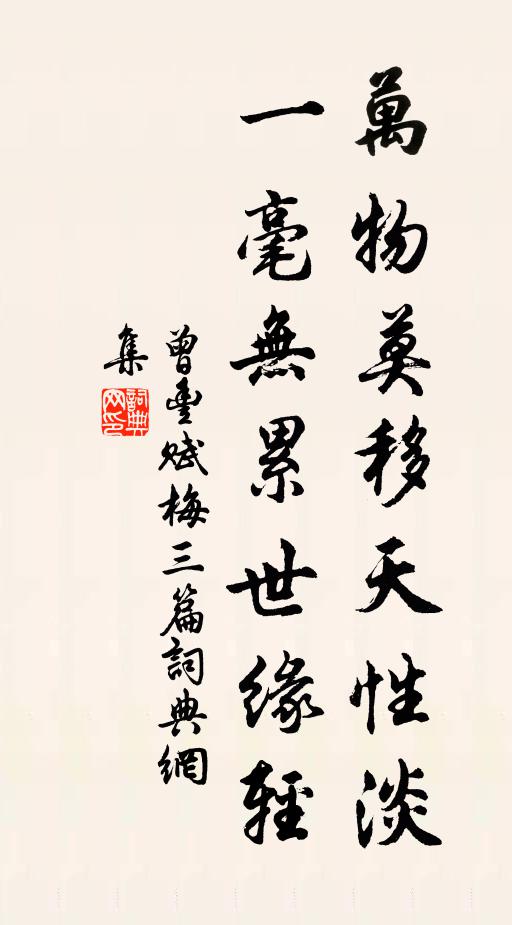 萬物莫移天性淡
一毫無累世緣輕
曾豐賦梅三篇詞典網
集
詞典
网印